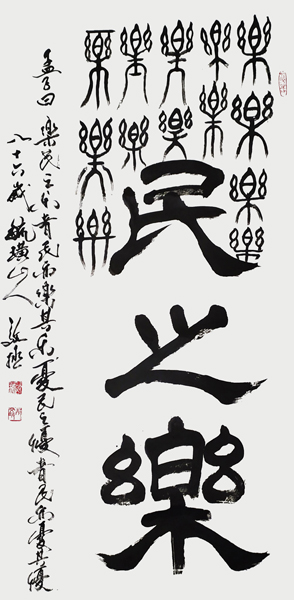 樂樂樂樂
樂樂
樂樂
樂樂樂
樂樂樂
民之樂
孟子曰 樂民之樂者民亦樂其樂憂民之憂者民亦憂其憂
八十六歲毓璜山人